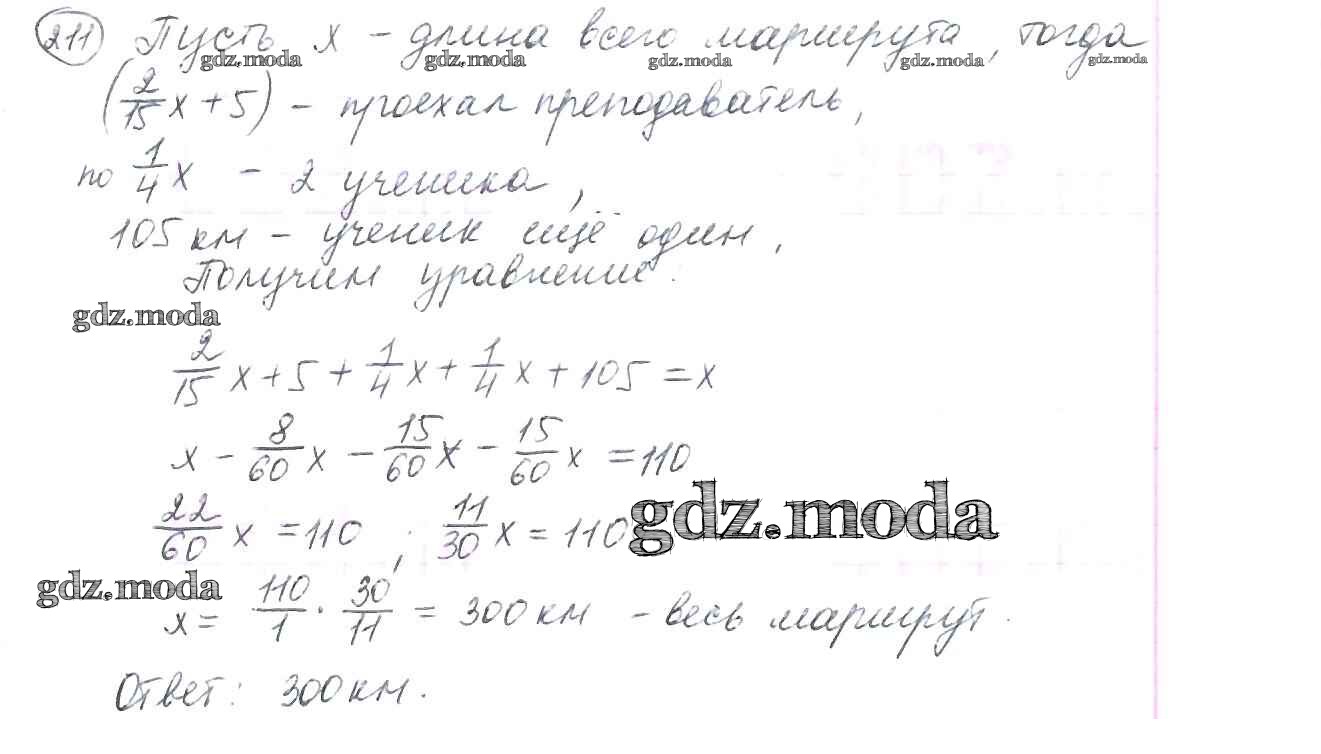 211 Пусть x – длина всего маршрута, тогда
gdz.moda gdz.moda gdz.moda gdz.moda gdz.moda
(2/15 x + 5) – проехал преподаватель,
по 1/4 x – 2 ученика,
105 км – ученик ещё один.
Получим уравнение:
gdz.moda
2/15 x + 5 + 1/4 x + 1/4 x + 105 = x
x – 8/60 x – 15/60 x – 15/60 x = 110
22/60 x = 110 ; 11/30 x = 110
gdz.moda
gdz.moda
x = 110/1 · 30/11 = 300 км – весь маршрут.
Ответ: 300 км.